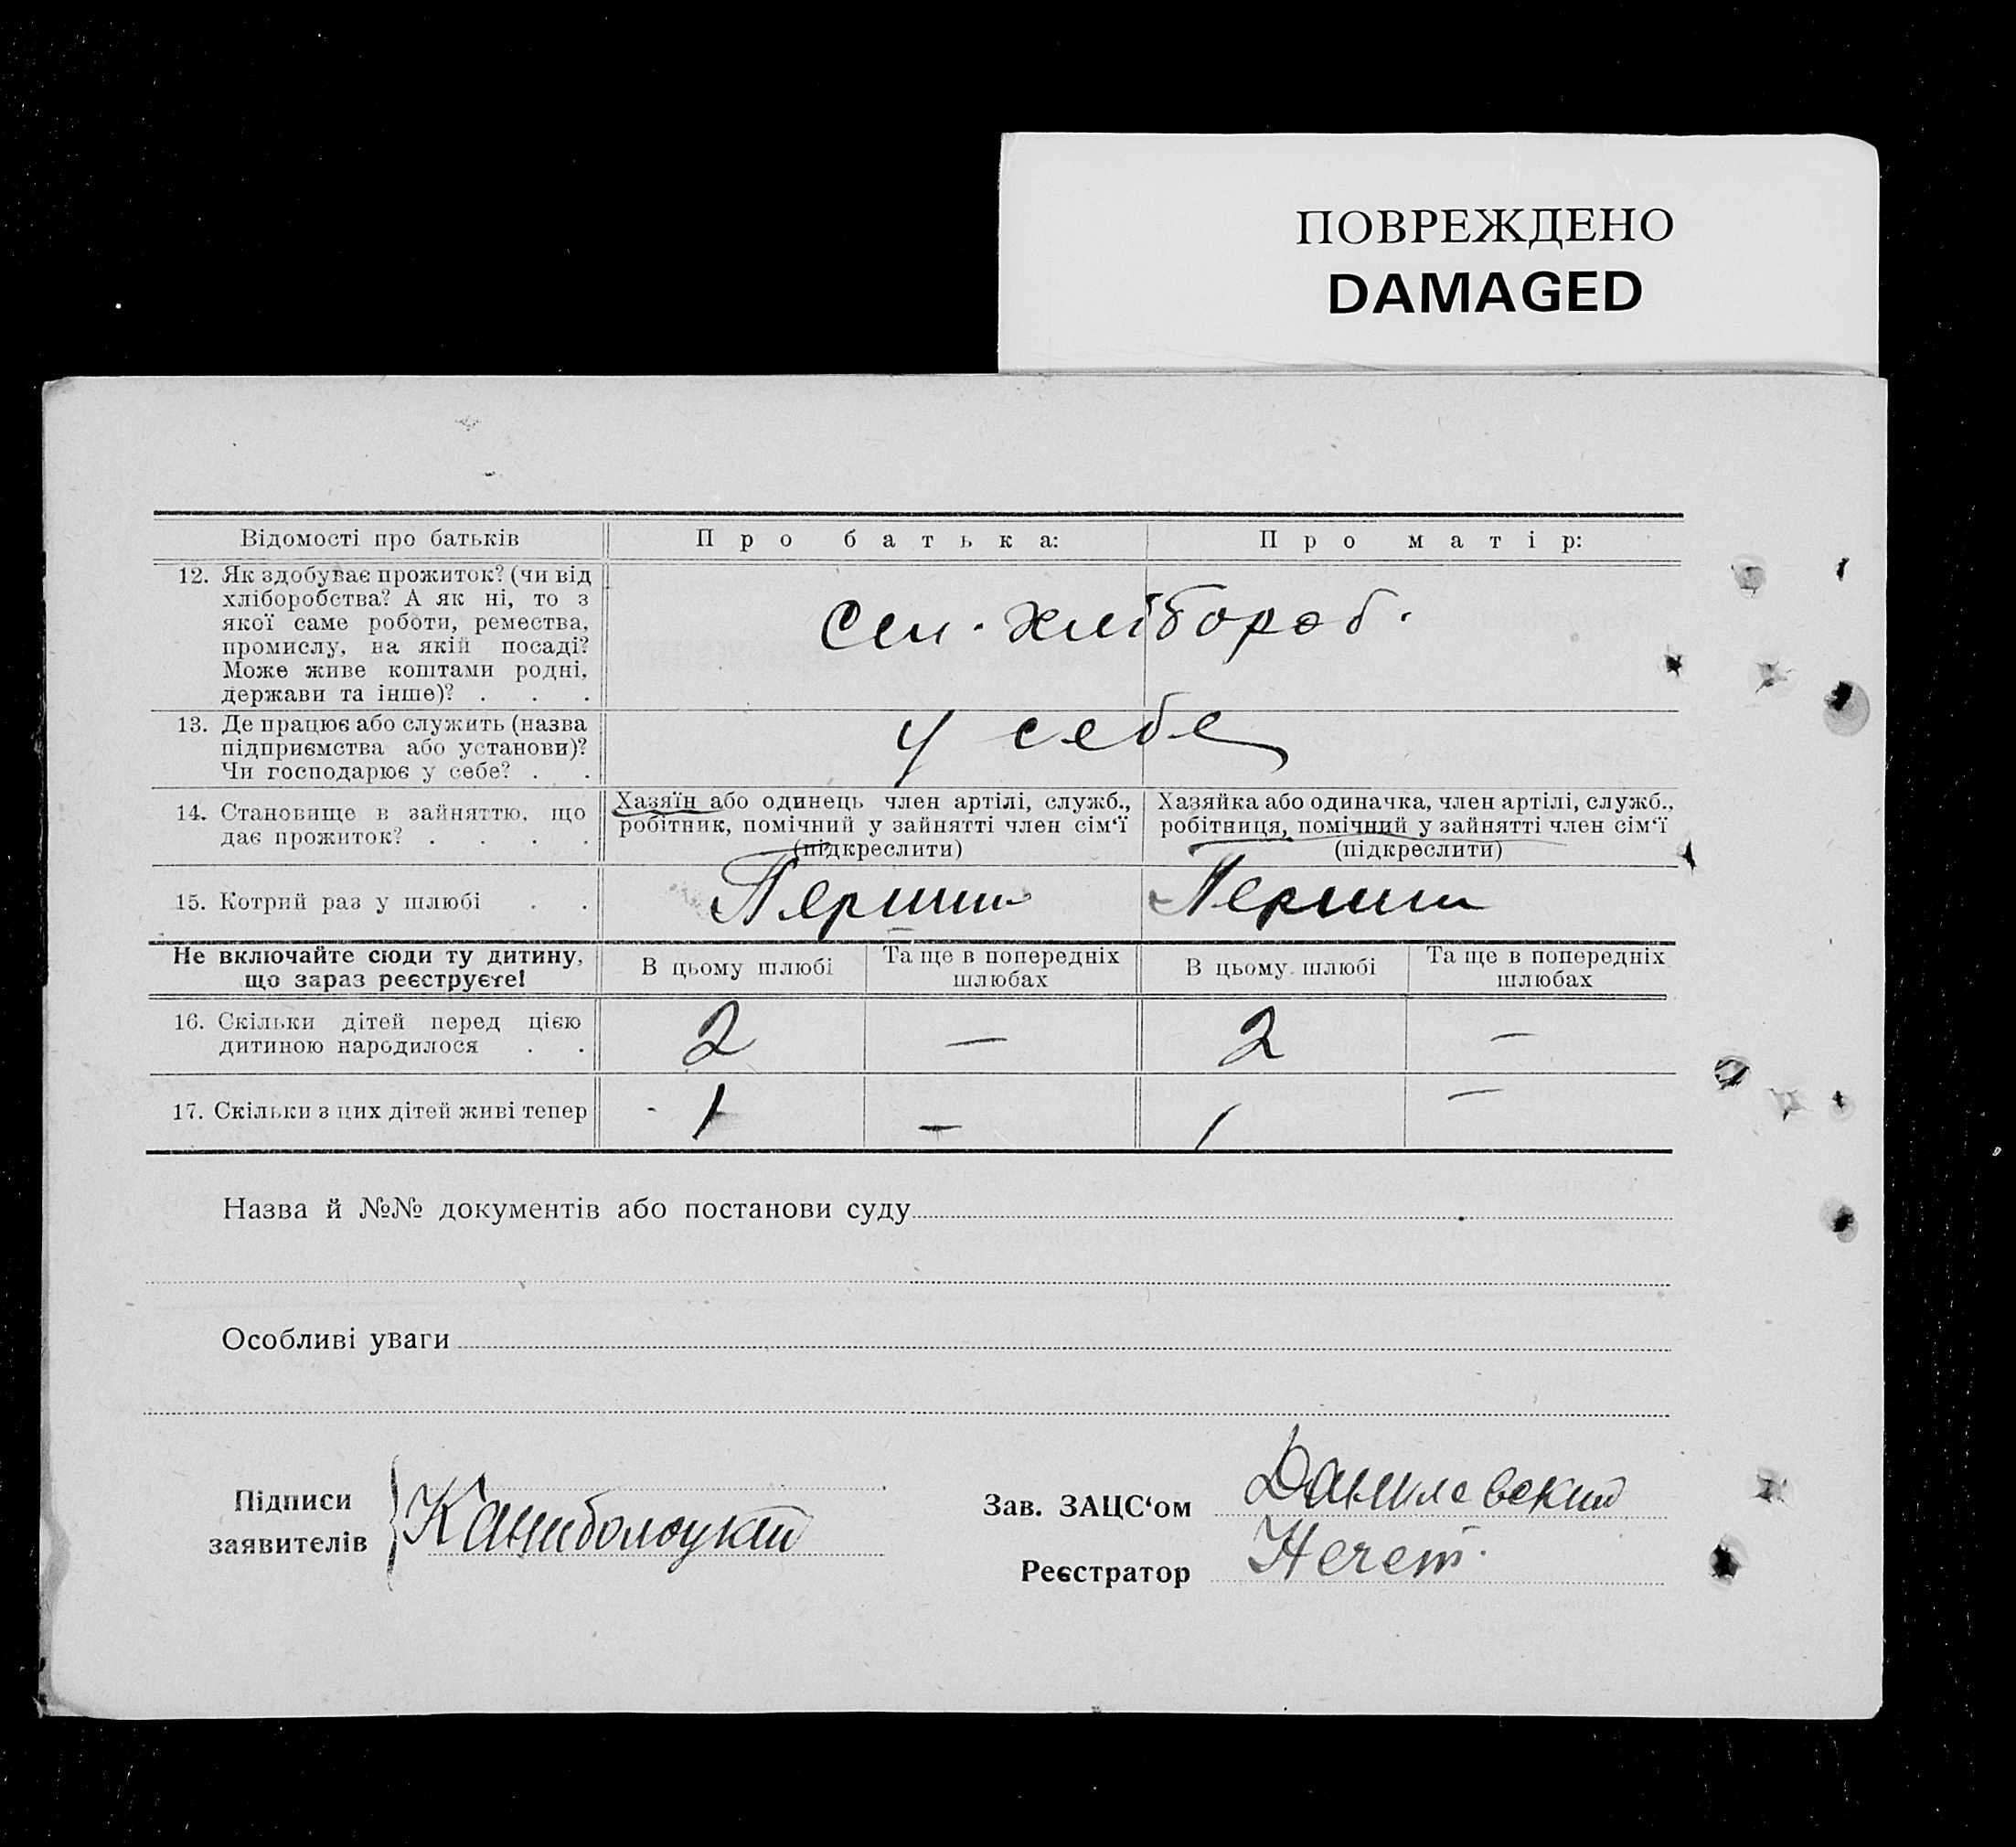 ПОВРЕЖДЕНО
DAMAGED
Відомості про батьків
Про батька:
Про матір:
12. Як здобуває прожиток? (чи від
хліборобства? А як ні, то з
якої саме роботи, ремества,
промислу, на якій посаді?
Може живе коштами родні,
держави та інше)? . . .
Сел. хлібороб.
13. Де працює або служить (назва
підприємства або установи)?
Чи господарює у себе? . .
у себе
14. Становище в зайняттю, що
дає прожиток? . . . .
Хазяїн або одинець член артілі, служб.,
робітник, помічний у зайнятті член сім‘ї
(підкреслити)
Хазяйка або одиначка, член артілі, служб.,
робітниця, помічний у зайнятті член сім‘ї
(підкреслити)
15. Котрий раз у шлюбі . .
Перший
Перший
Не включайте сюди ту дитину,
що зараз реєструєте!
В цьому шлюбі
Та ще в попередніх
шлюбах
В цьому шлюбі
Та ще в попередніх
шлюбах
16. Скільки дітей перед цією
дитиною народилося . .
2
—
2
—
17. Скільки з цих дітей живі тепер
1
—
1
—
Назва й №№ документів або постанови суду
Особливі уваги
Підписи
заявителів
Каниболоцкий
Зав. ЗАЦС‘ом
Данилевский
Реєстратор